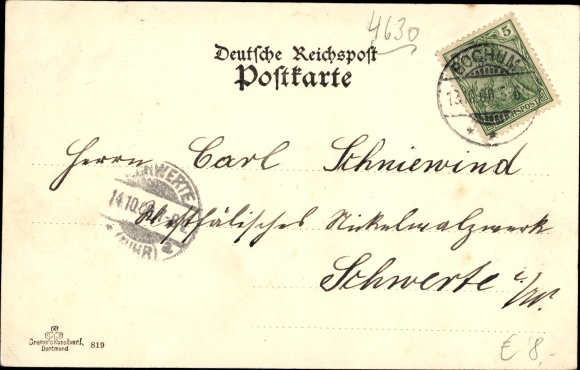 4630
Deutsche Reichspost
Postkarte
5
BOCHUM
13.
REICHSPOST
Herrn Carl Schniewind
SCHWERTE
14.10.
(RUHR)
Westfälisches Nickelwalzwerk
Schwerte i/W.
Cramers Kunstverl.
Dortmund
819
€ 8,-